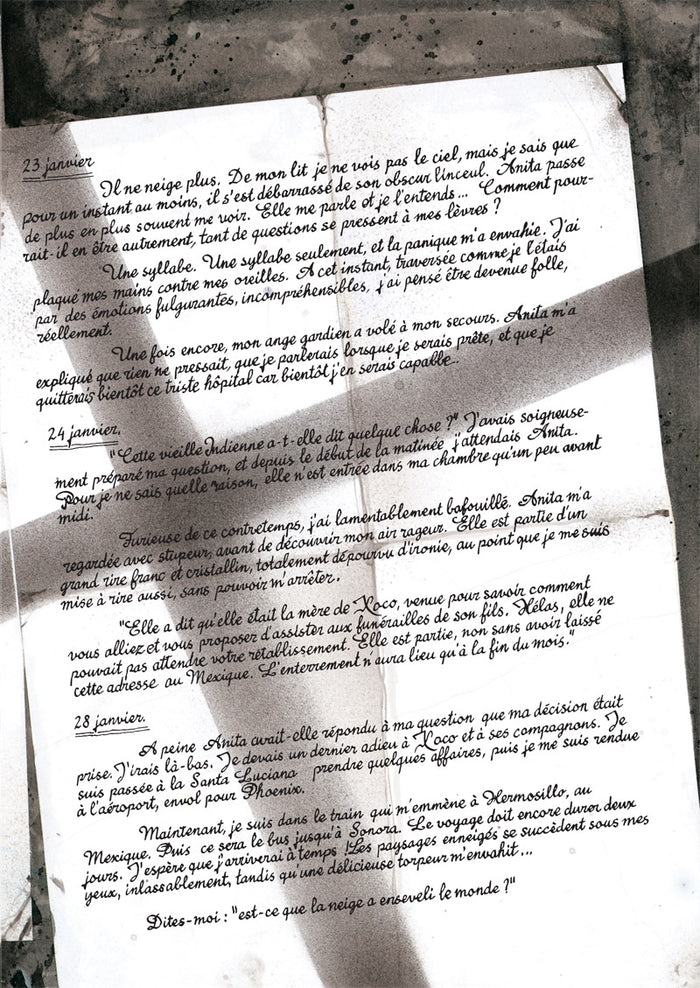 23 janvier
Il ne neige plus. De mon lit je ne vois pas le ciel, mais je sais que
pour un instant au moins, il s'est débarrassé de son obscur linceul. Anita passe
de plus en plus souvent me voir. Elle me parle et je l'entends... Comment pour-
rait-il en être autrement, tant de questions se pressent à mes lèvres ?
Une syllabe. Une syllabe seulement, et la panique m'a envahie. J'ai
plaqué mes mains contre mes oreilles. A cet instant, traversée comme je l'étais
par des émotions fulgurantes, incompréhensibles, j'ai pensé être devenue folle,
réellement.
Une fois encore, mon ange gardien a volé à mon secours. Anita m'a
expliqué que rien ne pressait, que je parlerais lorsque je serais prête, et que je
quitterais bientôt ce triste hôpital car bientôt j'en serais capable...
24 janvier.
"Cette vieille Indienne a-t-elle dit quelque chose ?" J'avais soigneuse-
ment préparé ma question, et depuis le début de la matinée j'attendais Anita.
Pour je ne sais quelle raison, elle n'est entrée dans ma chambre qu'un peu avant
midi.
Furieuse de ce contretemps, j'ai lamentablement bafouillé. Anita m'a
regardée avec stupeur, avant de découvrir mon air rageur. Elle est partie d'un
grand rire franc et cristallin, totalement dépourvu d'ironie, au point que je me suis
mise à rire aussi, sans pouvoir m'arrêter.
"Elle a dit qu'elle était la mère de Xoco, venue pour savoir comment
vous alliez et vous proposer d'assister aux funérailles de son fils. Hélas, elle ne
pouvait pas attendre votre rétablissement. Elle est partie, non sans avoir laissé
cette adresse au Mexique. L'enterrement n'aura lieu qu'à la fin du mois."
28 janvier.
A peine Anita avait-elle répondu à ma question que ma décision était
prise. J'irais là-bas. Je devais un dernier adieu à Xoco et à ses compagnons. Je
suis passée à la Santa Luciana prendre quelques affaires, puis je me suis rendue
à l'aéroport, envol pour Phoenix.
Maintenant, je suis dans le train qui m'emmène à Hermosillo, au
Mexique. Puis ce sera le bus jusqu'à Sonora. Le voyage doit encore durer deux
jours. J'espère que j'arriverai à temps ! Les paysages enneigés se succèdent sous mes
yeux, inlassablement, tandis qu'une délicieuse torpeur m'envahit...
Dites-moi : "est-ce que la neige a enseveli le monde ?"